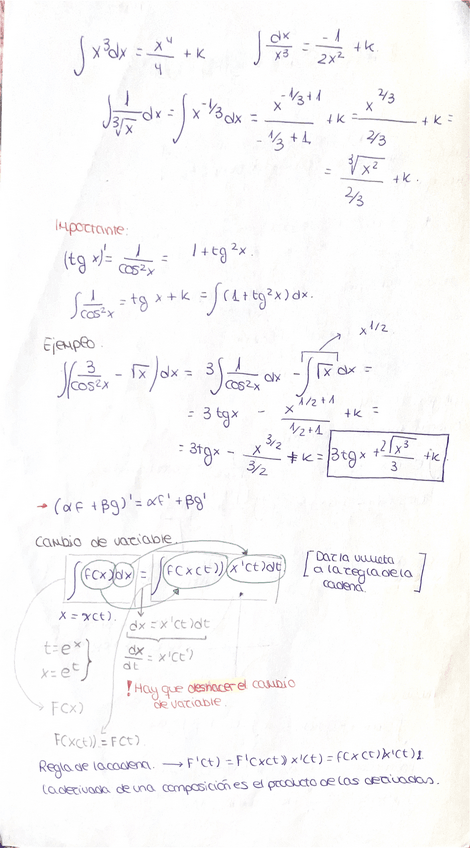 ∫ x³dx = x⁴/4 + k    ∫ dx/x³ = -1/2x² + k
∫ 1/∛x dx = ∫ x^(-1/3) dx = x^(-1/3+1)/(-1/3+1) + k = x^(2/3)/(2/3) + k =
= ∛x²/(2/3) + k.
Importante:
(tg x)' = 1/cos²x = 1 + tg²x.
∫ 1/cos²x = tg x + k = ∫(1 + tg²x) dx.
Ejemplo. x^(1/2)
∫(3/cos²x - √x) dx = 3∫ 1/cos²x dx - ∫√x dx =
= 3 tgx - x^(1/2+1)/(1/2+1) + k =
= 3tgx - x^(3/2)/(3/2) + k = 3tgx + 2√x³/3 + k
→ (αF + βg)' = αF' + βg'
Cambio de variable.
∫ f(x) dx = ∫ f(x(t)) x'(t)dt [Dar la vuelta
a la regla de la
cadena.]
x = x(t).
dx = x'(t)dt
t = eˣ
dx/dt = x'(t)
x = eᵗ
! Hay que deshacer el cambio
de variable.
F(x)
F(x(t)) = F(t).
Regla de la cadena. → F'(t) = F'(x(t)) x'(t) = f(x(t)) x'(t).
La derivada de una composición es el producto de las derivadas.